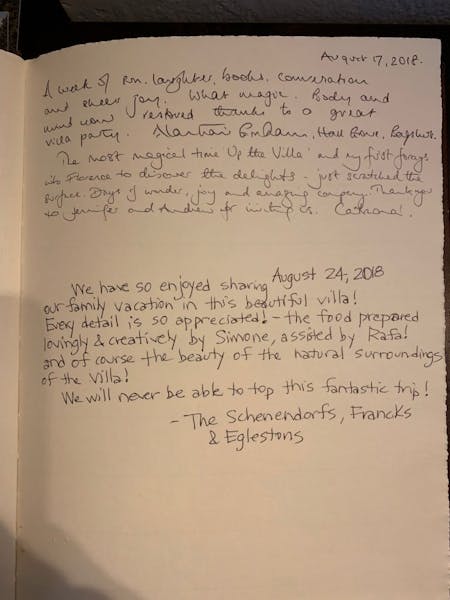 August 17, 2018.
A week of fun, laughter, books, conversation
and sheer joy. What magic. Body and
mind now restored thanks to a great
villa party.
The most magical time 'Up the Villa' and my first forays
into Florence to discover the delights - just scratched the
surface. Days of wonder, joy and amazing company. Thank you
to Jennifer and Andrew for inviting us. Catriona!
August 24, 2018
We have so enjoyed sharing
our family vacation in this beautiful villa!
Every detail is so appreciated! - the food prepared
lovingly & creatively by Simone, assisted by Rafa!
and of course the beauty of the natural surroundings
of the villa!
We will never be able to top this fantastic trip!
- The Schenendorfs, Francks
& Eglestons